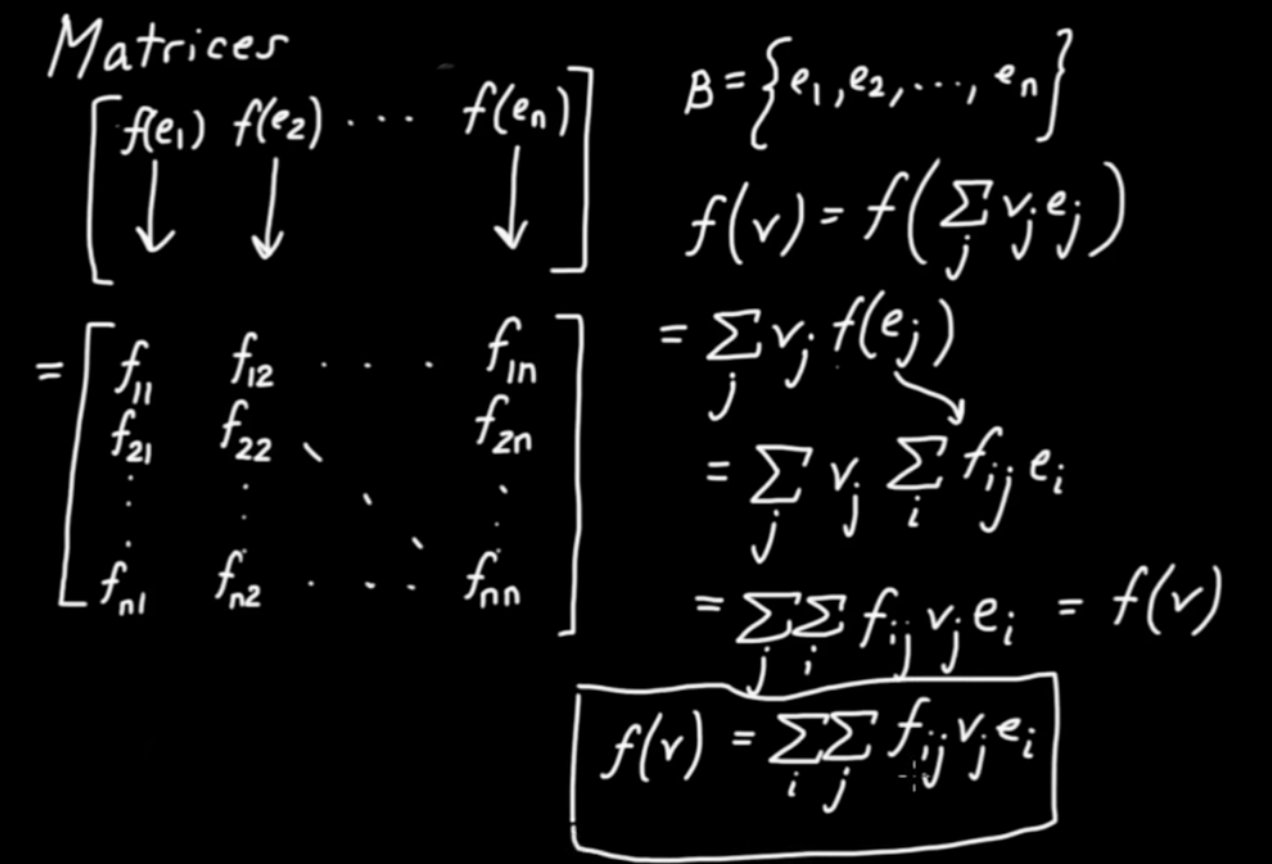 Matrices
[ f(e₁) f(e₂) ··· f(eₙ) ]
↓ ↓ ↓
= [ f₁₁ f₁₂ · · · f₁ₙ
f₂₁ f₂₂ ⋱ f₂ₙ
⋮ ⋮ ⋱ ⋮
fₙ₁ fₙ₂ · · · fₙₙ ]
B = {e₁, e₂, ..., eₙ}
f(v) = f(∑_j v_j e_j)
= ∑_j v_j f(e_j)
= ∑_j v_j ∑_i f_ij e_i
= ∑_j ∑_i f_ij v_j e_i = f(v)
f(v) = ∑_i ∑_j f_ij v_j e_i